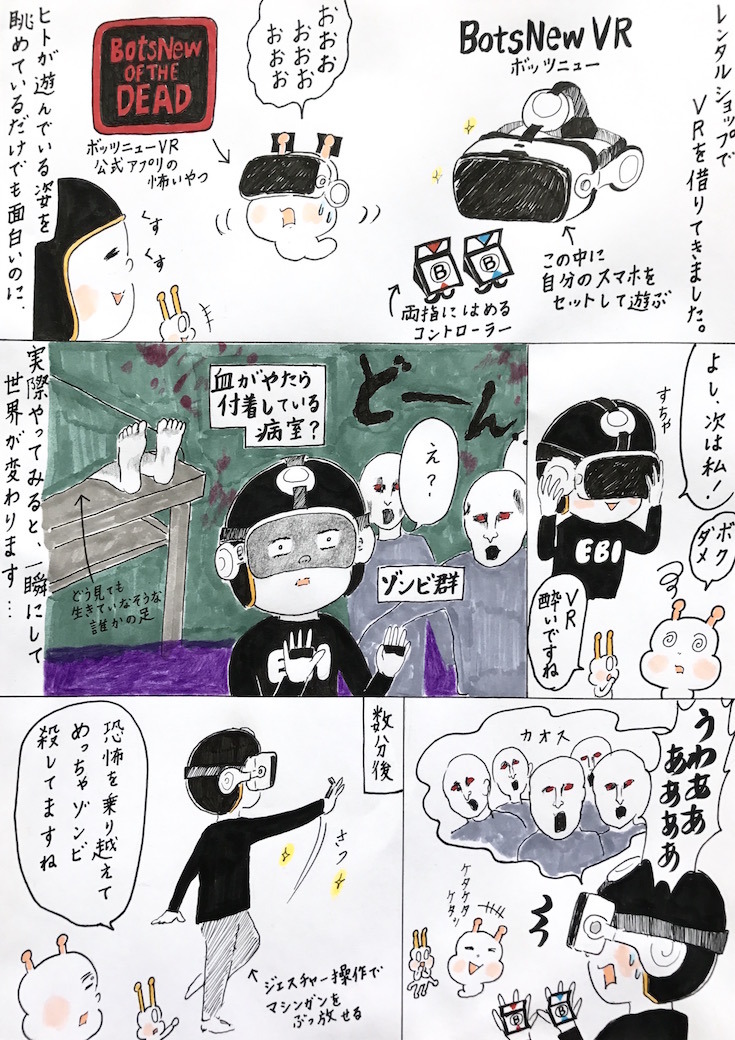 レンタルショップで
VRを借りてきました。
BotsNew VR
ボッツニュー
この中に
自分のスマホを
セットして遊ぶ
両指にはめる
コントローラー
B
B
おおお
おおお
おおお
BotsNew
OF THE
DEAD
ボッツニューVR
公式アプリの
怖いやつ
くす
くす
ヒトが遊んでいる姿を
眺めているだけでも面白いのに、
よし、次は私!
すちゃ
EBI
ボク
ダメ
VR
酔いですね
どーん
え?
血がやたら
付着している
病室?
ゾンビ群
EBI
どう見ても
生きていなそうな
誰かの足
実際やってみると、一瞬にして
世界が変わります…
うわああ
ああああ
カオス
ケタケタ
ケタッ
B
B
数分後
さっ
ジェスチャー操作で
マシンガンを
ぶっ放せる
恐怖を乗り越えて
めっちゃゾンビ
殺してますね